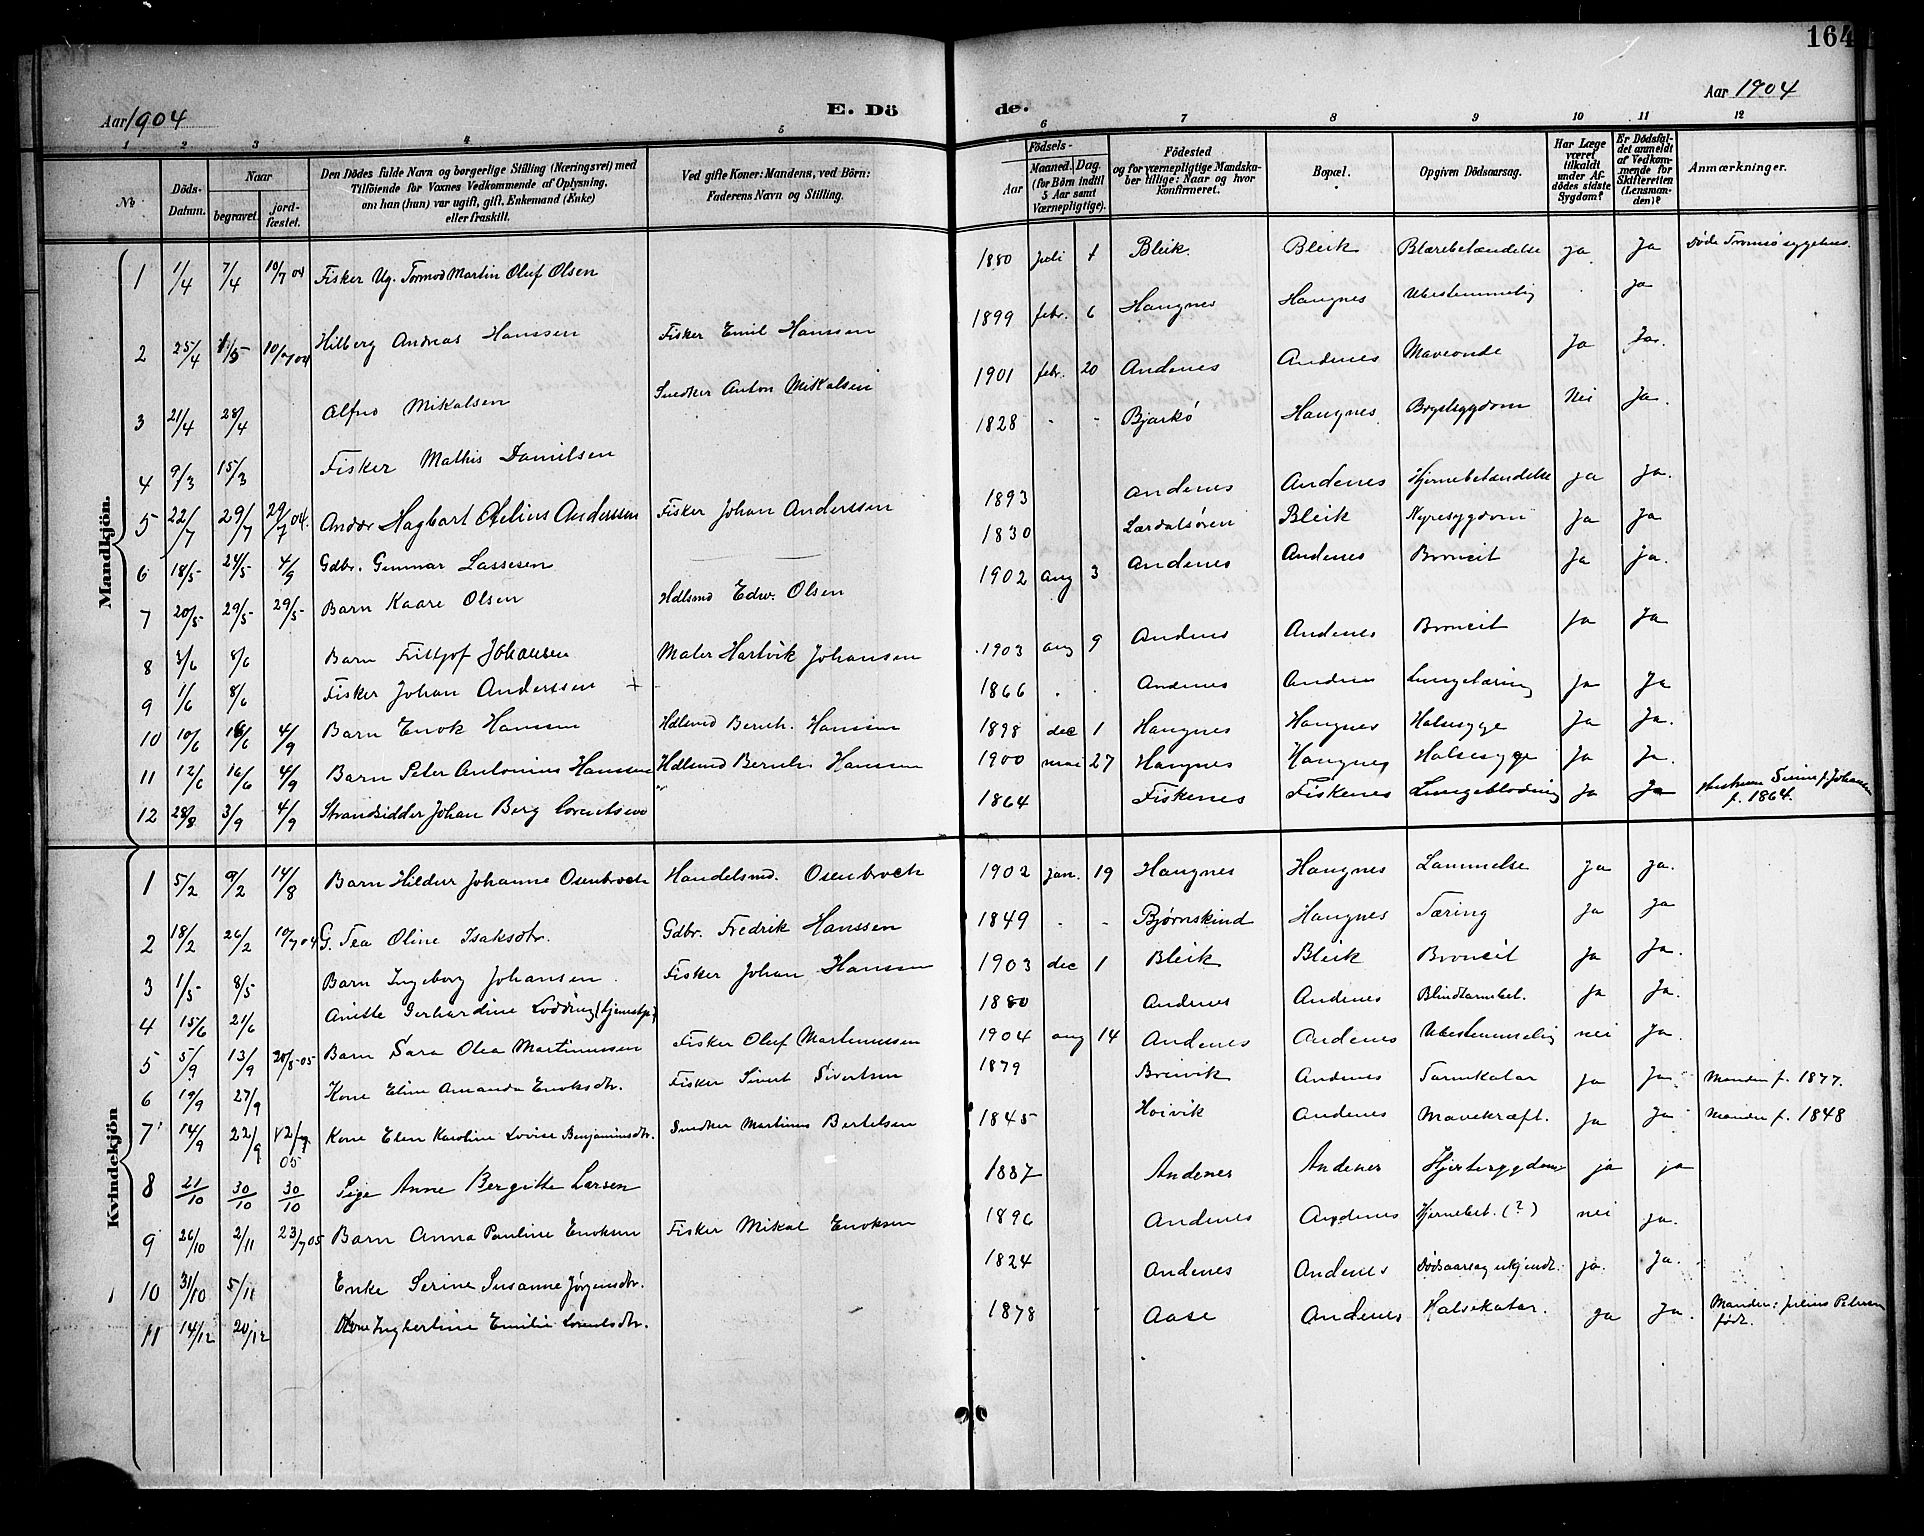 164
Aar 1904
E. Dö
de.
Aar 1904
1 2 3 4 5 6 7 8 9 10 11 12
No
Döds-Datum.
Naar
begravet.
jord-fæstet.
Den Dödes fulde Navn og borgerlige Stilling (Næringsvei) med
Tilföiende for Voxnes Vedkommende af Oplysning,
om han (hun) var ugift, gift, Enkemand (Enke)
eller fraskilt.
Ved gifte Koner: Mandens, ved Börn:
Faderens Navn og Stilling.
Födsels-
Aar
Maaned. Dag.
(for Börn indtil
5 Aar samt
Værnepligtige).
Födested
og for værnepligtige Mandska-
ber tillige: Naar og hvor
konfirmeret.
Bopæl.
Opgiven Dödsaarsag.
Har Læge
været
tilkaldt
under Af-
dödes sidste
Sygdom?
Er Dödsfal-
det anmeldt
af Vedkom-
mende for
Skifteretten
(Lensman-
den)?
Anmærkninger.
Mandkjön.
1 1/4 7/4 10/7 04 Fisker Ug. Tormod Martin Oluf Olsen 1880 juli 1 Bleik Bleik Blærebetændelse ja Ja Døde Tromsø sygehus.
2 25/4 1/5 10/7 04 Hilberg Andreas Hanssen Fisker Emil Hanssen 1899 febr. 6 Haugnes Haugnes Ubestemmelig ja
3 21/4 28/4 Alfred Mikalsen Snedker Anton Mikalsen 1901 febr. 20 Andenes Andenes Maveonde Ja Ja.
4 9/3 15/3 Fisker Mathis Danielsen 1828 - - Bjarkö Haugnes Brystsygdom Nei Ja.
5 22/7 29/7 29/7 04 Andor Hagbart Otelius Anderssen Fisker Johan Anderssen 1893 Andenes Andenes Hjernebetændelse ja ja.
6 18/5 24/5 4/9 Gdbr. Gunnar Lassesen 1830 Lærdalsören Bleik Nyresygdom Ja Ja
7 20/5 29/5 29/5 Barn Kaare Olsen Hdlsmd Edw. Olsen 1902 aug 3 Andenes Andenes Broncit Ja ja.
8 3/6 8/6 Barn Fritjof Johansen Maler Hartvik Johansen 1903 aug 9 Andenes Andenes Broncit Ja Ja
9 1/6 8/6 Fisker Johan Anderssen + 1866 . . Andenes Andenes Lungetæring ja Ja
10 10/6 16/6 4/9 Barn Enok Hanssen Hdlsmd Bernh. Hanssen 1898 dec 1 Haugnes Haugnes Halssyge Ja Ja.
11 12/6 16/6 4/9 Barn Peter Antonius Hanssen Hdlsmd Bernh. Hanssen 1900 mai 27 Haugnes Haugnes Halssyge Ja Ja.
12 28/8 3/9 4/9 Strandsidder Johan Berg Lorentsen 1864 Fiskenes Fiskenes Lungeblödning Ja Ja Hustruen f. Johansen
f. 1864.
Kvindekjön
1 5/2 9/2 14/8 Barn Hildur Johanne Osenbroch Handelsmd. Osenbroch 1902 jan. 19 Haugnes Haugnes Lammelse Ja Ja.
2 18/2 26/2 10/7 04 G. Tea Oline Isaksdtr. Gdbr. Fredrik Hanssen 1849 - - Bjørnskind Haugnes Tæring Ja Ja
3 1/5 8/5 Barn Ingeborg Johansen. Fisker Johan Hanssen 1903 dec 1 Bleik Bleik Broncit Ja Ja.
4 15/6 21/6 Anette Gerhardine Lodding (tjenestpi.) 1880 Andenes Andenes Blindtarmbet. Ja Ja.
5 5/9 13/9 20/8-05 Barn Sara Olea Martinussen Fisker Oluf Martinussen 1904 aug 14 Andenes Andenes Ubestemmelig nei Ja.
6 19/9 27/9 Kone Eline Amanda Enoksdtr. Fisker Sivert Sivertsen 1879 Breivik Andenes Tarmkatar Ja Ja. Manden f. 1877.
7 14/9 22/9 12/7 05 Kone Elen Karoline Lovise Benjaminsdtr. Snedker Martinus Bertelsen 1845 Hoivik Andenes Mavekræft. Ja Ja Manden f. 1848
8 21/10 30/10 30/10 Pige Anne Bergitte Larsen 1887 Andenes Andenes Hjertesygdom ja ja
9 26/10 2/11 23/7 05 Barn Anna Pauline Enoksen Fisker Mikal Enoksen 1896 Andenes Andenes Hjernebet. (?) nei ja.
10 31/10 5/11 Enke Serine Susanne Jørgensdtr. 1824 Andenes Andenes Dødsaarsag ukjendt. ja. Ja.
11 14/12 20/12 Kone Ingbertine Emilie Lorentsdtr. 1878 Aase Andenes Halskatar. ja Ja. Manden: Julius Petersen
født.